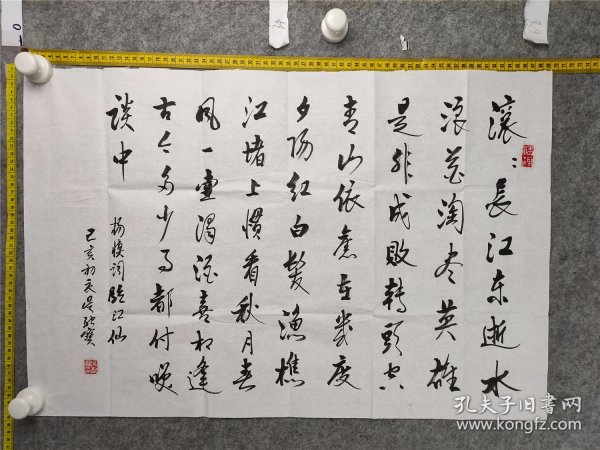 滚〻長江东逝水
浪花淘尽英雄
是非成敗轉頭空
青山依舊在幾度
夕陽红白髮漁樵
江堵上慣看秋月春
風一壶濁酒喜相逢
古今多少事都付笑
談中
杨慎词临江仙
己亥初夏吴
孔夫子旧书网
www.kongfz.com